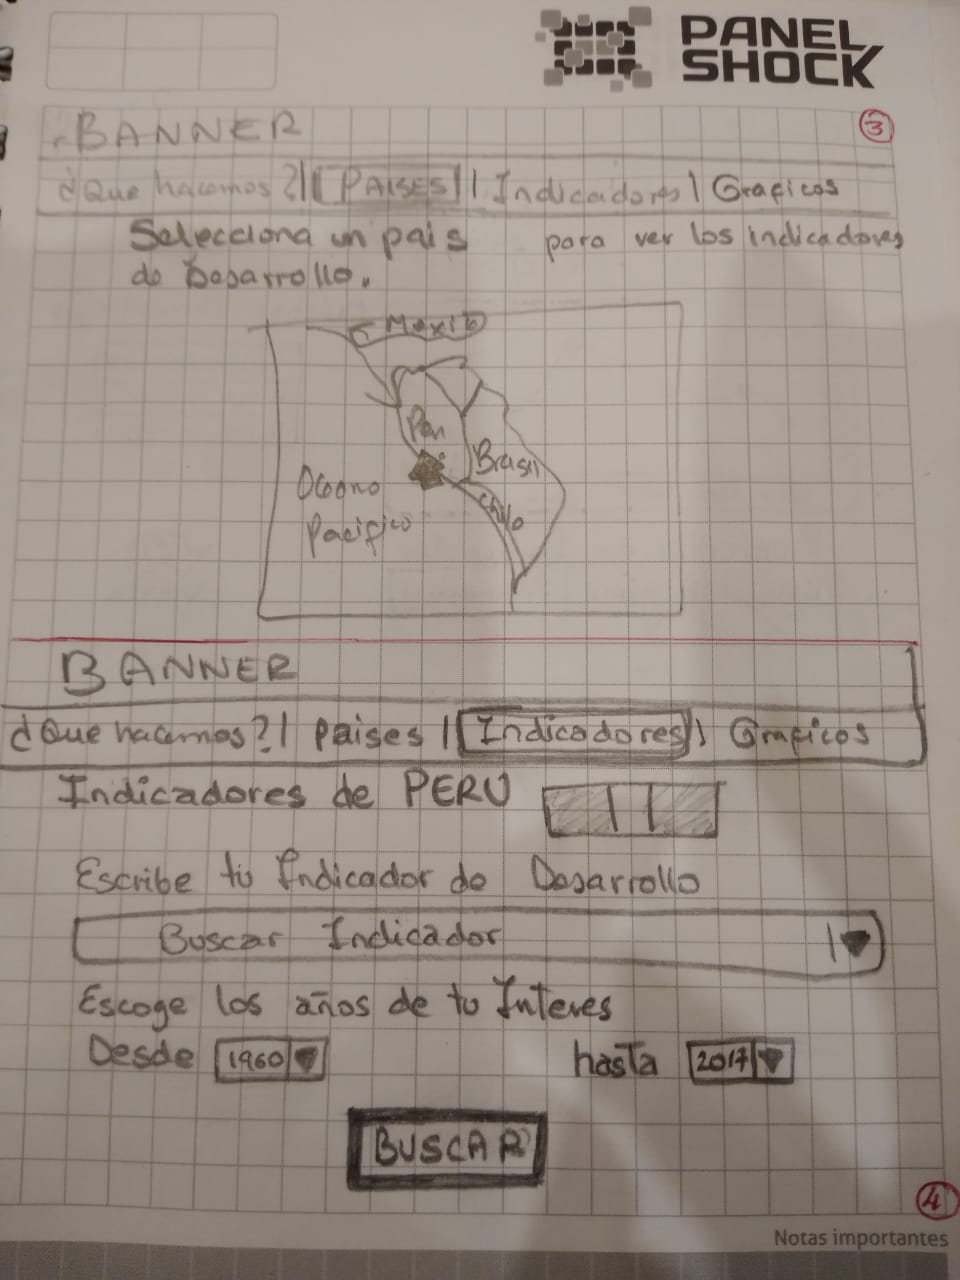 PANEL
SHOCK
BANNER
3
¿Que hacemos?| | PAISES | | Indicadores | Graficos
Selecciona un pais para ver los indicadores
de Desarrollo.
Mexico
Brasil
Oceano
Pacifico
Chile
BANNER
¿Que hacemos?| Paises | Indicadores | Graficos
Indicadores de PERU
Escribe tu Indicador de Desarrollo
Buscar Indicador
Escoge los años de tu Interes
Desde 1960 hasta 2017
BUSCAR
4
Notas importantes